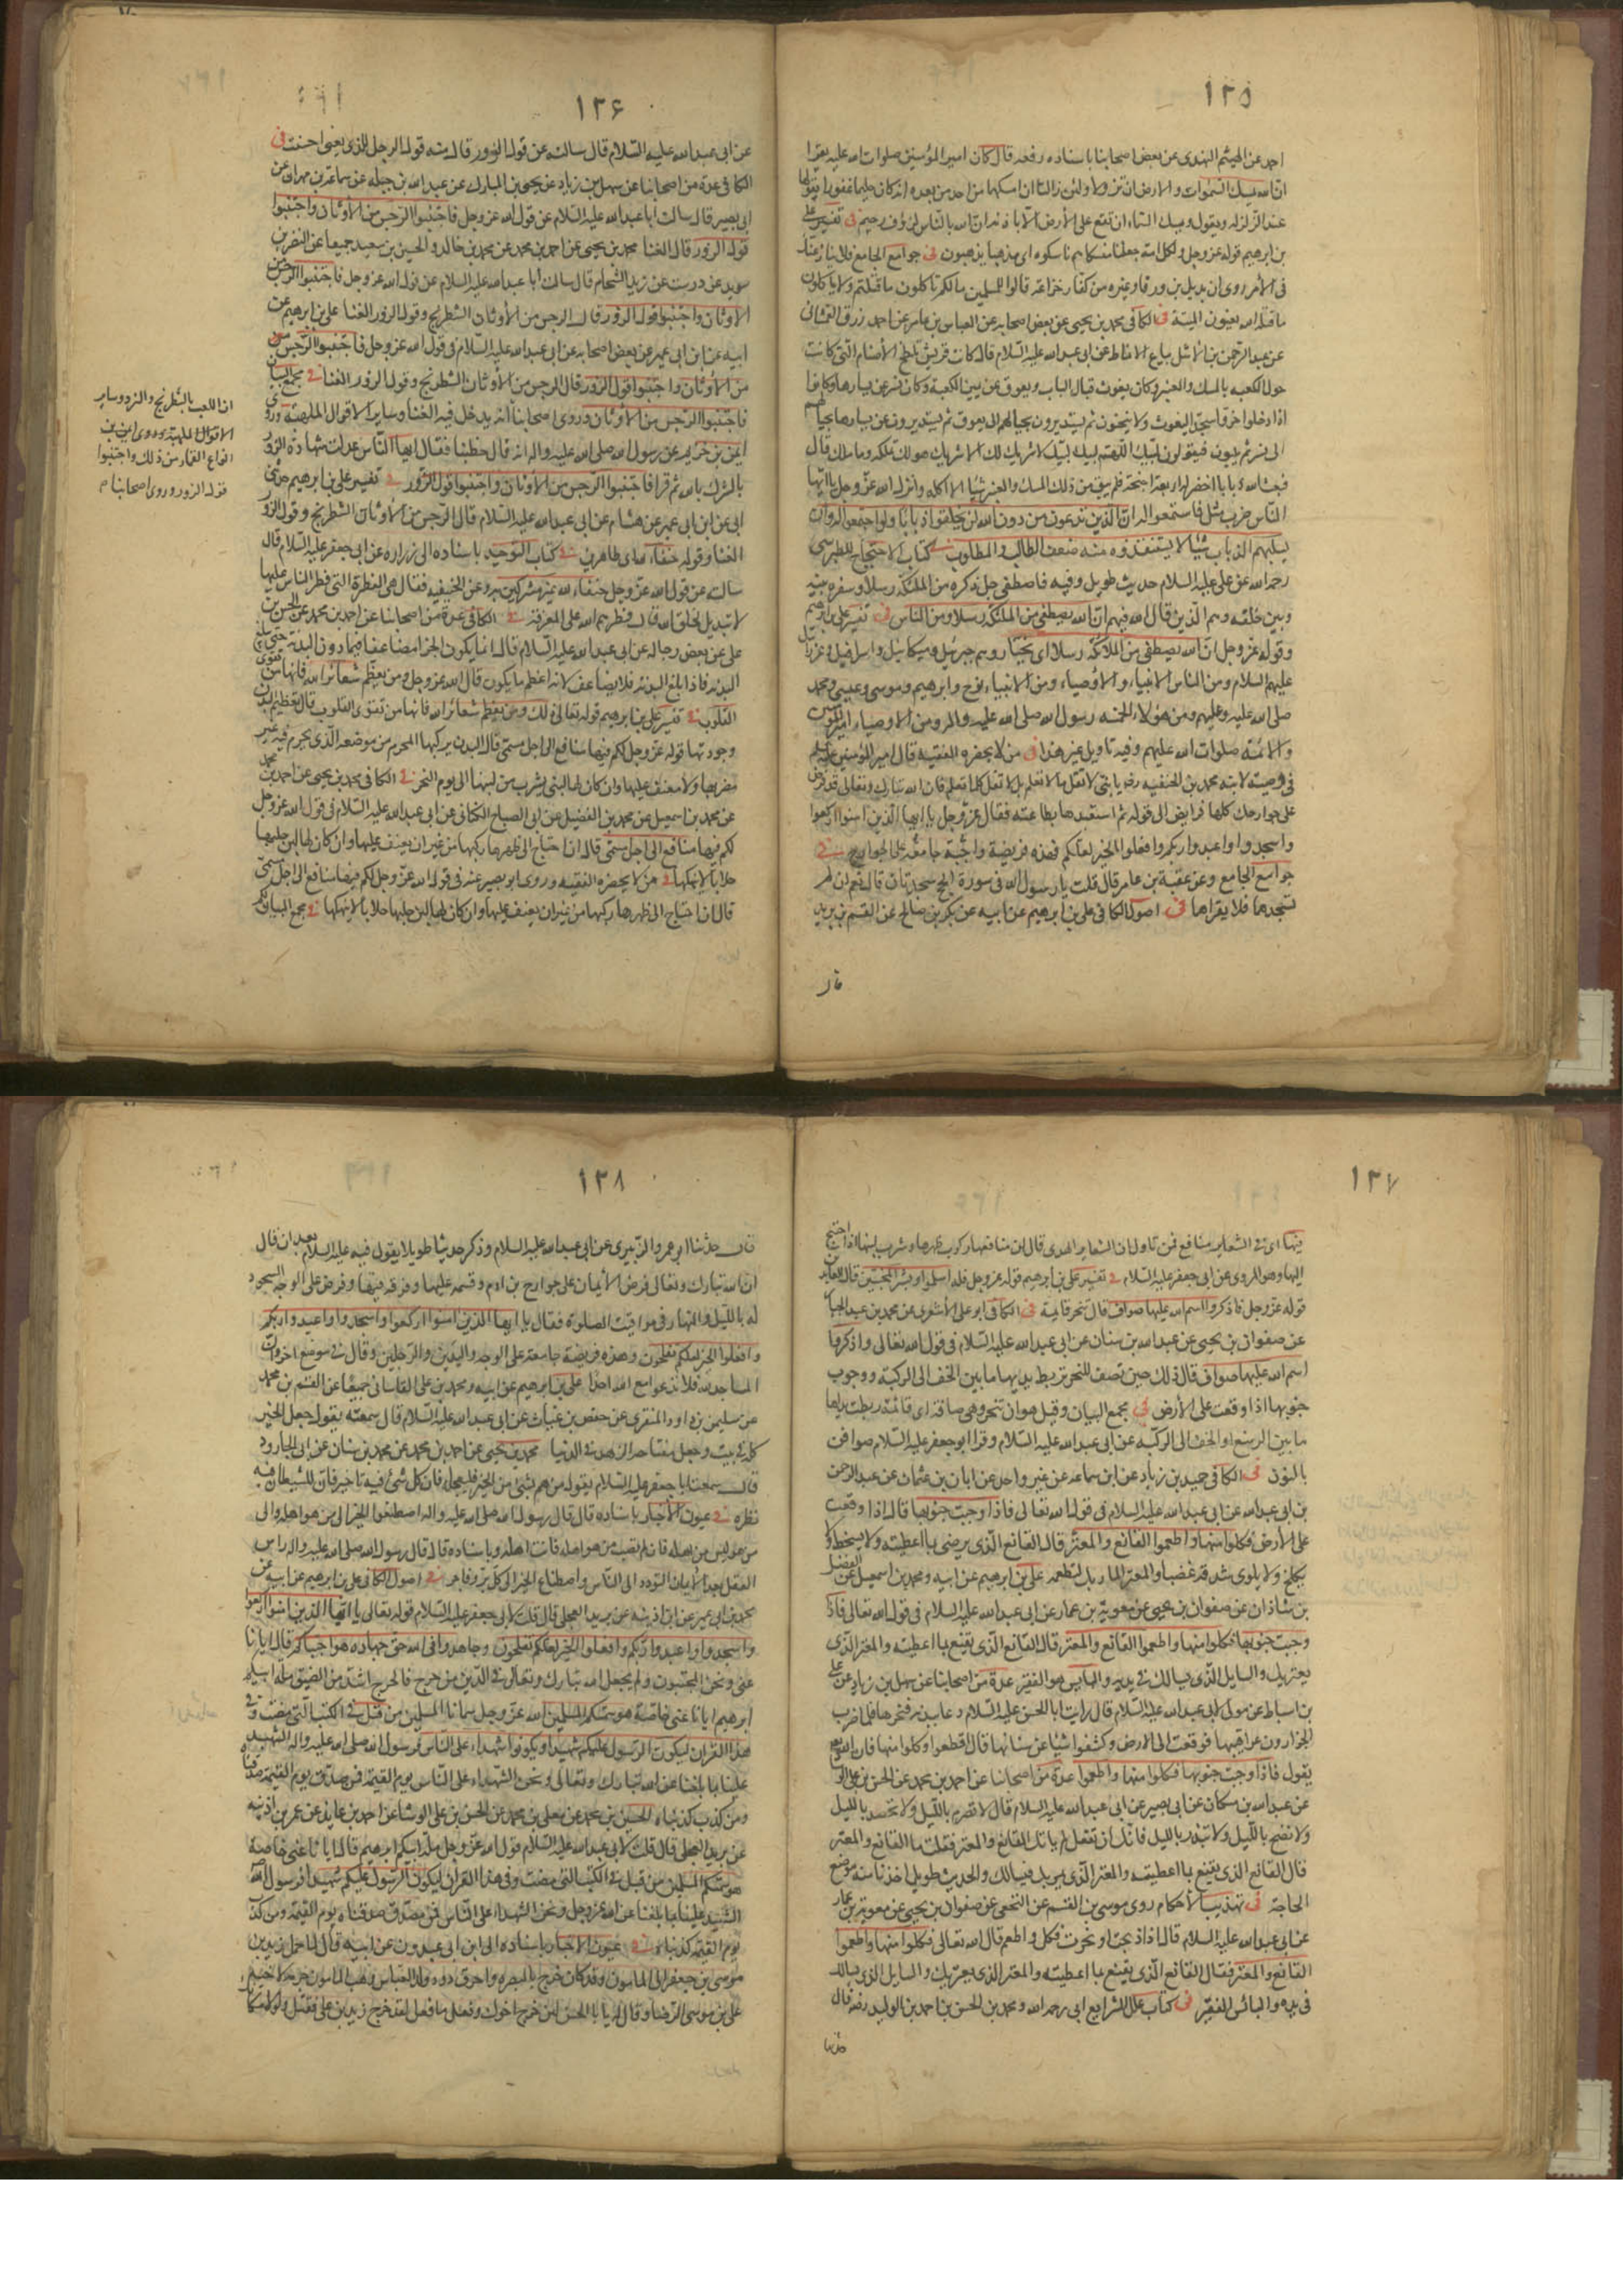 ١٢٥
احمد عن الهيثم النهدى عن بعض اصحابنا باسناده رفعه قال كان امير المؤمنين صلوات الله عليه يقرا
ان الله يمسك السموات والارض ان تزولا ولئن زالتا ان امسكهما من احد من بعده انه كان حليما غفورا يقولها
عند الزلزلة ويقول ويمسك السماء ان تقع على الأرض الا باذنه ان الله بالناس لرؤف رحيم فى تفسير على
بن ابرهيم قوله عز وجل ولكل امة جعلنا منسكا هم ناسكوه اى مذهبا يذهبون فى جوامع الجامع فلا ينازعنك
فى الأمر روى ان بديل بن ورقا وغيره من كفار خزاعة قالوا للمسلمين مالكم تاكلون ما قتلتم ولا تاكلون
ما قتله الله يعنون الميتة فى الكافى محمد بن يحيى عن بعض اصحابه عن العباس بن عامر عن احمد بن رزق الغمشانى
عن عبد الرحمن بن الاشل بياع الانماط عن ابى عبد الله عليه السلام قال كانت قريش تلطخ الأصنام التى كانت
حول الكعبه بالمسك والعنبر وكان يغوث قبال الباب ويعوق عن يمين الكعبة وكان نسر عن يسارها وكانوا
اذا دخلوا خروا سجدا ليغوث ولا ينحنون ثم يستديرون بحيالهم الى يعوق ثم يستديرون عن يسارها بحيالهم
الى نسر ثم يلبون فيقولون لبيك اللهم لبيك لبيك لا شريك لك الا شريك هو لك تملكه وما ملك قال
فبعث الله ذبابا اخضر له اربعة اجنحة فلم يبق من ذلك المسك والعنبر شيئا الا اكله وانزل الله عز وجل يا ايها
الناس ضرب مثل فاستمعوا له ان الذين تدعون من دون الله لن يخلقوا ذبابا ولو اجتمعوا له وان
يسلبهم الذباب شيئا لا يستنقذوه منه ضعف الطالب والمطلوب فى كتاب الاحتجاج للطبرسى
رحمه الله عن على عليه السلام حديث طويل وفيه فاصطفى جل ذكره من الملئكة رسلا وسفرة بينه
وبين خلقه وهم الذين قال الله فيهم ان الله يصطفى من الملئكة رسلا ومن الناس فى تفسير على بن ابرهيم
وقوله عز وجل ان الله يصطفى من الملائكة رسلا اى يختار وهم جبرئيل وميكائيل واسرافيل وعزرائيل
عليهم السلام ومن الناس الانبياء والأوصياء ومن الانبياء نوح وابرهيم وموسى وعيسى ومحمد
صلى الله عليه وعليهم ومن هؤلاء الخمسة رسول الله صلى الله عليه واله ومن الاوصياء امير المؤمنين
والائمة صلوات الله عليهم وفيه تاويل غير هذا فى من لا يحضره الفقيه قال امير المؤمنين عليه السلم
فى وصيته لابنه محمد بن الحنفيه رض يا بنى لا تقل ما لا تعلم بل لا تقل كلما تعلم فان الله تبارك وتعالى قد فرض
على جوارحك كلها فرايض الى قوله ثم استعبدها بطاعته فقال عز وجل يا ايها الذين امنوا اركعوا
واسجدوا واعبدوا ربكم وافعلوا الخير لعلكم فهذه فريضة واجبة جامعة على الجوارح فى
جوامع الجامع وعن عقبة بن عامر قال قلت يا رسول الله فى سورة الحج سجدتان قال نعم ان لم
تسجدها فلا يقراها فى اصول الكافى على بن ابرهيم عن ابيه عن بكر بن صالح عن القسم بن بريد
قال
١٢۶
عن ابى عبد الله عليه السلام قال سالته عن قول الزور قال منه قول الرجل للذى يغنى احسنت فى
الكافى عدة من اصحابنا عن سهل بن زياد عن يحيى بن المبارك عن عبد الله بن جبله عن سماعة بن مهران عن
ابى بصير قال سالت ابا عبد الله عليه السلام عن قول الله عز وجل فاجتنبوا الرجس من الأوثان واجتنبوا
قول الزور قال الغنا محمد بن يحيى عن احمد بن محمد عن محمد بن خالد والحسين بن سعيد جميعا عن النضر بن
سويد عن درست عن زيد الشحام قال سالت ابا عبد الله عليه السلام عن قول الله عز وجل فاجتنبوا الرجس من
الاوثان واجتنبوا قول الزور قال الرجس من الأوثان الشطرنج وقول الزور الغنا على بن ابرهيم عن
ابيه عن ابن ابى عمير عن بعض اصحابه عن ابى عبد الله عليه السلام فى قول الله عز وجل فاجتنبوا الرجس
من الأوثان واجتنبوا قول الزور قال الرجس من الأوثان الشطرنج وقول الزور الغنا فى مجمع البيان
فاجتنبوا الرجس من الأوثان وروى اصحابنا انه يدخل فيه الغنا وساير الاقوال الملهية وروى
ايمن بن خريم عن رسول الله صلى الله عليه واله انه قال خطبنا فقال ايها الناس عدلت شهادة الزور
بالشرك بالله ثم قرا فاجتنبوا الرجس من الأوثان واجتنبوا قول الزور فى تفسير على بن ابرهيم حدثنى
ابى عن ابن ابى عمير عن هشام عن ابى عبد الله عليه السلام قال الرجس من الأوثان الشطرنج وقول الزور
الغنا وقوله حنفاء لله اى طاهرين فى كتاب التوحيد باسناده الى زرارة عن ابى جعفر عليه السلام قال
سالته عن قول الله عز وجل حنفاء لله غير مشركين به وعن الحنيفيه فقال هى الفطرة التى فطر الناس عليها
لا تبديل لخلق الله قال فطرهم الله على المعرفة فى الكافى عدة من اصحابنا عن احمد بن محمد عن الحسن بن
على عن بعض رجاله عن ابى عبد الله عليه السلام قال انما يكون الجزا مضاعفا فيما دون البدنة حتى يبلغ
البدنه فاذا بلغ البدنة فلا يضاعف لانه اعظم ما يكون قال الله عز وجل ومن يعظم شعائر الله فانها من تقوى
القلوب فى تفسير على بن ابرهيم قوله تعالى ذلك ومن يعظم شعائر الله فانها من تقوى القلوب قال تعظيم البدن
وجودتها قوله عز وجل لكم فيها منافع الى اجل مسمى قال البدن يركبها المحرم من موضعه الذى يحرم فيه غير
مضر بها ولا معنف عليها وان كان لها لبن يشرب من لبنها الى يوم النحر فى الكافى محمد بن يحيى عن احمد بن محمد
عن محمد بن اسمعيل عن محمد بن الفضيل عن ابى الصباح الكنانى عن ابى عبد الله عليه السلام فى قول الله عز وجل
لكم فيها منافع الى اجل مسمى قال ان احتاج الى ظهرها ركبها من غير ان يعنف عليها وان كان لها لبن حلبها
حلابا لا ينهكها فى من لا يحضره الفقيه وروى ابو بصير عنه فى قول الله عز وجل لكم فيها منافع الى اجل مسمى
قال ان احتاج الى ظهرها ركبها من غير ان يعنف عليها وان كان لها لبن حلبها حلابا لا ينهكها فى مجمع البيان لكم
ان اللعب بالشطرنج والنرد وساير
انواع القمار من ذلك واجتنبوا
قول الزور وروى اصحابنا
١٢٧
فيها اى فى الشعاير منافع فمن تاول ان الشعاير الهدى قال ان منافعها ركوب ظهرها وشرب لبنها اذا احتيج
اليها وهو المروى عن ابى جعفر عليه السلام فى تفسير على بن ابرهيم قوله عز وجل فله اسلموا وبشر المخبتين قال العابدين
قوله عز وجل فاذكروا اسم الله عليها صواف قال تنحر قائمة فى الكافى ابو على الأشعرى عن محمد بن عبد الجبار
عن صفوان بن يحيى عن عبد الله بن سنان عن ابى عبد الله عليه السلام فى قول الله تعالى واذكروا
اسم الله عليها صواف قال ذلك حين تصف للنحر تربط يديها ما بين الخف الى الركبة ووجوب
جنوبها اذا وقعت على الأرض فى مجمع البيان وقيل هو ان تنحر وهى صافة اى قائمة ربطت يداها
ما بين الرسغ او الخف الى الركبه عن ابى عبد الله عليه السلام وقرا ابو جعفر عليه السلام صوافن
بالنون فى الكافى حميد بن زياد عن ابن سماعه عن غير واحد عن ابان بن عثمان عن عبد الرحمن
بن ابى عبد الله عن ابى عبد الله عليه السلام فى قول الله تعالى فاذا وجبت جنوبها قال اذا وقعت
على الأرض فكلوا منها واطعموا القانع والمعتر قال القانع الذى يرضى بما اعطيته ولا يسخط ولا
يكلح ولا يلوى شدقه غضبا والمعتر المار بك لتطعمه على بن ابرهيم عن ابيه ومحمد بن اسمعيل عن الفضل
بن شاذان عن صفوان بن يحيى عن معوية بن عمار عن ابى عبد الله عليه السلام فى قول الله تعالى فاذا
وجبت جنوبها فكلوا منها واطعموا القانع والمعتر قال القانع الذى يقنع بما اعطيته والمعتر الذى
يعتريك والسايل الذى يسالك فى يديه والبايس هو الفقير عدة من اصحابنا عن سهل بن زياد عن على
بن اسباط عن مولى لابى عبد الله عليه السلام قال رايت ابا الحسن عليه السلام دعا ببدنة فنحرها فلما ضرب
الجزارون عراقيبها فوقعت الى الارض وكشفوا شيئا عن سنامها قال اقطعوا وكلوا منها فان الله
يقول فاذا وجبت جنوبها فكلوا منها واطعموا عدة من اصحابنا عن احمد بن محمد عن الحسن بن على الوشا
عن عبد الله بن مسكان عن ابى بصير عن ابى عبد الله عليه السلام قال لا تصرم بالليل ولا تحصد بالليل
ولا تضح بالليل ولا تبذر بالليل فانك ان تفعل لم ياتك القانع والمعتر فقلت ما القانع والمعتر
قال القانع الذى يقنع بما اعطيته والمعتر الذى يمر بك فيسالك والحديث طويل اخذنا منه موضع
الحاجة فى تهذيب الأحكام روى موسى بن القسم عن النخعى عن صفوان بن يحيى عن معوية بن عمار
عن ابى عبد الله عليه السلام قال اذا ذبحت او نحرت فكل واطعم قال الله تعالى فكلوا منها واطعموا
القانع والمعتر فقال القانع الذى يقنع بما اعطيته والمعتر الذى يعتريك والسايل الذى يسالك
فى يديه والبائس الفقير فى كتاب علل الشرايع ابى رحمه الله ومحمد بن الحسن بن احمد بن الوليد رضه قال
حدثنا
١٢٨
قال حدثنا ابو عمرو الزبيرى عن ابى عبد الله عليه السلام وذكر حديثا طويلا يقول فيه عليه السلام بعد ان قال
ان الله تبارك وتعالى فرض الأيمان على جوارح بن ادم وقسمه عليها وفرقه فيها وفرض على الوجه السجود
له بالليل والنهار فى مواقيت الصلوة فقال يا ايها الذين امنوا اركعوا واسجدوا واعبدوا ربكم
وافعلوا الخير لعلكم تفلحون وهذه فريضة جامعة على الوجه واليدين والرجلين وقال فى موضع اخر وان
المساجد لله فلا تدعوا مع الله احدا على بن ابرهيم عن ابيه ومحمد بن على القاسانى جميعا عن القسم بن محمد
عن سليمن بن داود المنقرى عن حفص بن غياث عن ابى عبد الله عليه السلام قال سمعته يقول جعل الخير
كله فى بيت وجعل مفتاحه الزهد فى الدنيا محمد بن يحيى عن احمد بن محمد عن محمد بن سنان عن ابى الجارود
قال سمعت ابا جعفر عليه السلام يقول من هم بشئ من الخير فليعجله فان كل شئ فيه تاخير فان للشيطان فيه
نظرة فى عيون الأخبار باسناده قال قال رسول الله صلى الله عليه واله اصطنعوا الخير الى من هو اهله والى
من هو ليس من اهله فان لم تصب من هو اهله فانت اهله وباسناده قال قال رسول الله صلى الله عليه واله راس
العقل بعد الأيمان التودد الى الناس واصطناع الخير الى كل بر وفاجر فى اصول الكافى على بن ابرهيم عن ابيه عن
محمد بن ابى عمير عن ابن اذينه عن بريد العجلى قال قلت لابى جعفر عليه السلام قوله تعالى يا ايها الذين امنوا اركعوا
واسجدوا واعبدوا ربكم وافعلوا الخير لعلكم تفلحون وجاهدوا فى الله حق جهاده هو اجتباكم قال ايانا
عنى ونحن المجتبون ولم يجعل الله تبارك وتعالى فى الدين من حرج فالحرج اشد من الضيق ملة ابيكم
ابرهيم ايانا عنى خاصة هو سماكم المسلمين الله عز وجل سمانا المسلمين من قبل فى الكتب التى مضت وفى
هذا القران ليكون الرسول عليكم شهيدا وتكونوا شهداء على الناس فرسول الله صلى الله عليه واله الشهيد
علينا بما بلغنا عن الله تبارك وتعالى ونحن الشهداء على الناس يوم القيمة فمن صدق يوم القيمة صدقناه
ومن كذب كذبناه الحسين بن محمد عن معلى بن محمد عن الحسن بن على الوشا عن احمد بن عايذ عن عمر بن اذينه
عن بريد العجلى قال قلت لابى عبد الله عليه السلام قول الله عز وجل ملة ابيكم ابرهيم قال ايانا عنى خاصة
هو سماكم المسلمين من قبل فى الكتب التى مضت وفى هذا القران ليكون الرسول عليكم شهيدا فرسول الله
الشهيد علينا بما بلغنا عن الله عز وجل ونحن الشهداء على الناس فمن صدق صدقناه يوم القيمة ومن كذب
يوم القيمة كذبناه فى عيون الاخبار باسناده الى ابن ابى عبدون عن ابيه قال لما حمل زيد بن
موسى بن جعفر الى المامون وقد كان خرج بالبصره واحرق دور ولد العباس وهب المامون جرمه لاخيه
على بن موسى الرضا وقال له يا ابا الحسن لئن خرج اخوك وفعل ما فعل لقد خرج زيد بن على فقتل ولولا مكانك